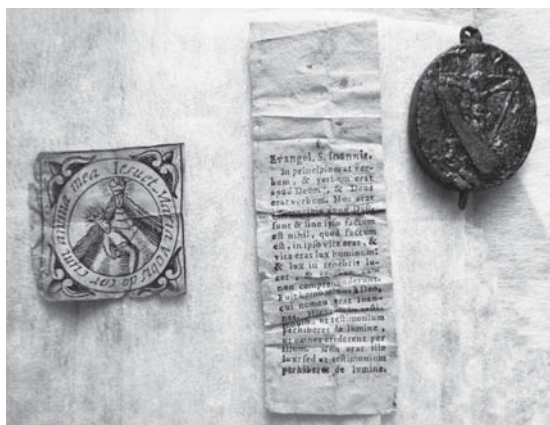 Iesu et Maria vobis do cor cum anima mea
Evangel. S. Ioannis.
In principio erat ver-
bum, & verbum erat
apud Deum, & Deus
erat verbum. Hoc erat
principio apud
sunt & sine ipso factum
est nihil, quod factum
est, in ipso vita erat, &
vita erat lux hominum:
& lux in tenebris lu-
cet, &
non comprehenderunt.
Fuit homo missus à Deo,
cui nomen erat Ioan-
nes.
ut testimonium
perhiberet de lumine,
ut omnes crederent per
illum. Non erat ille
lux sed ut testimonium
perhiberet de lumine.